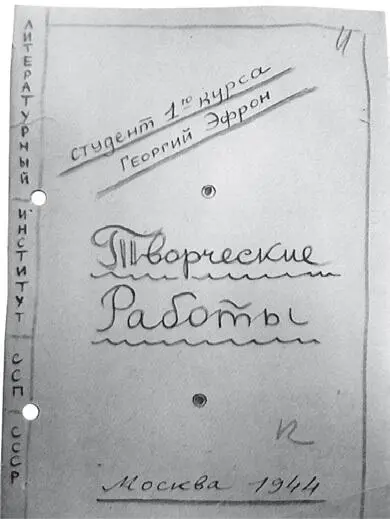 ЛИТЕРАТУРНЫЙ ИНСТИТУТ ССП СССР
студент 1го курса
Георгий Эфрон
Творческие
Работы
Москва 1944